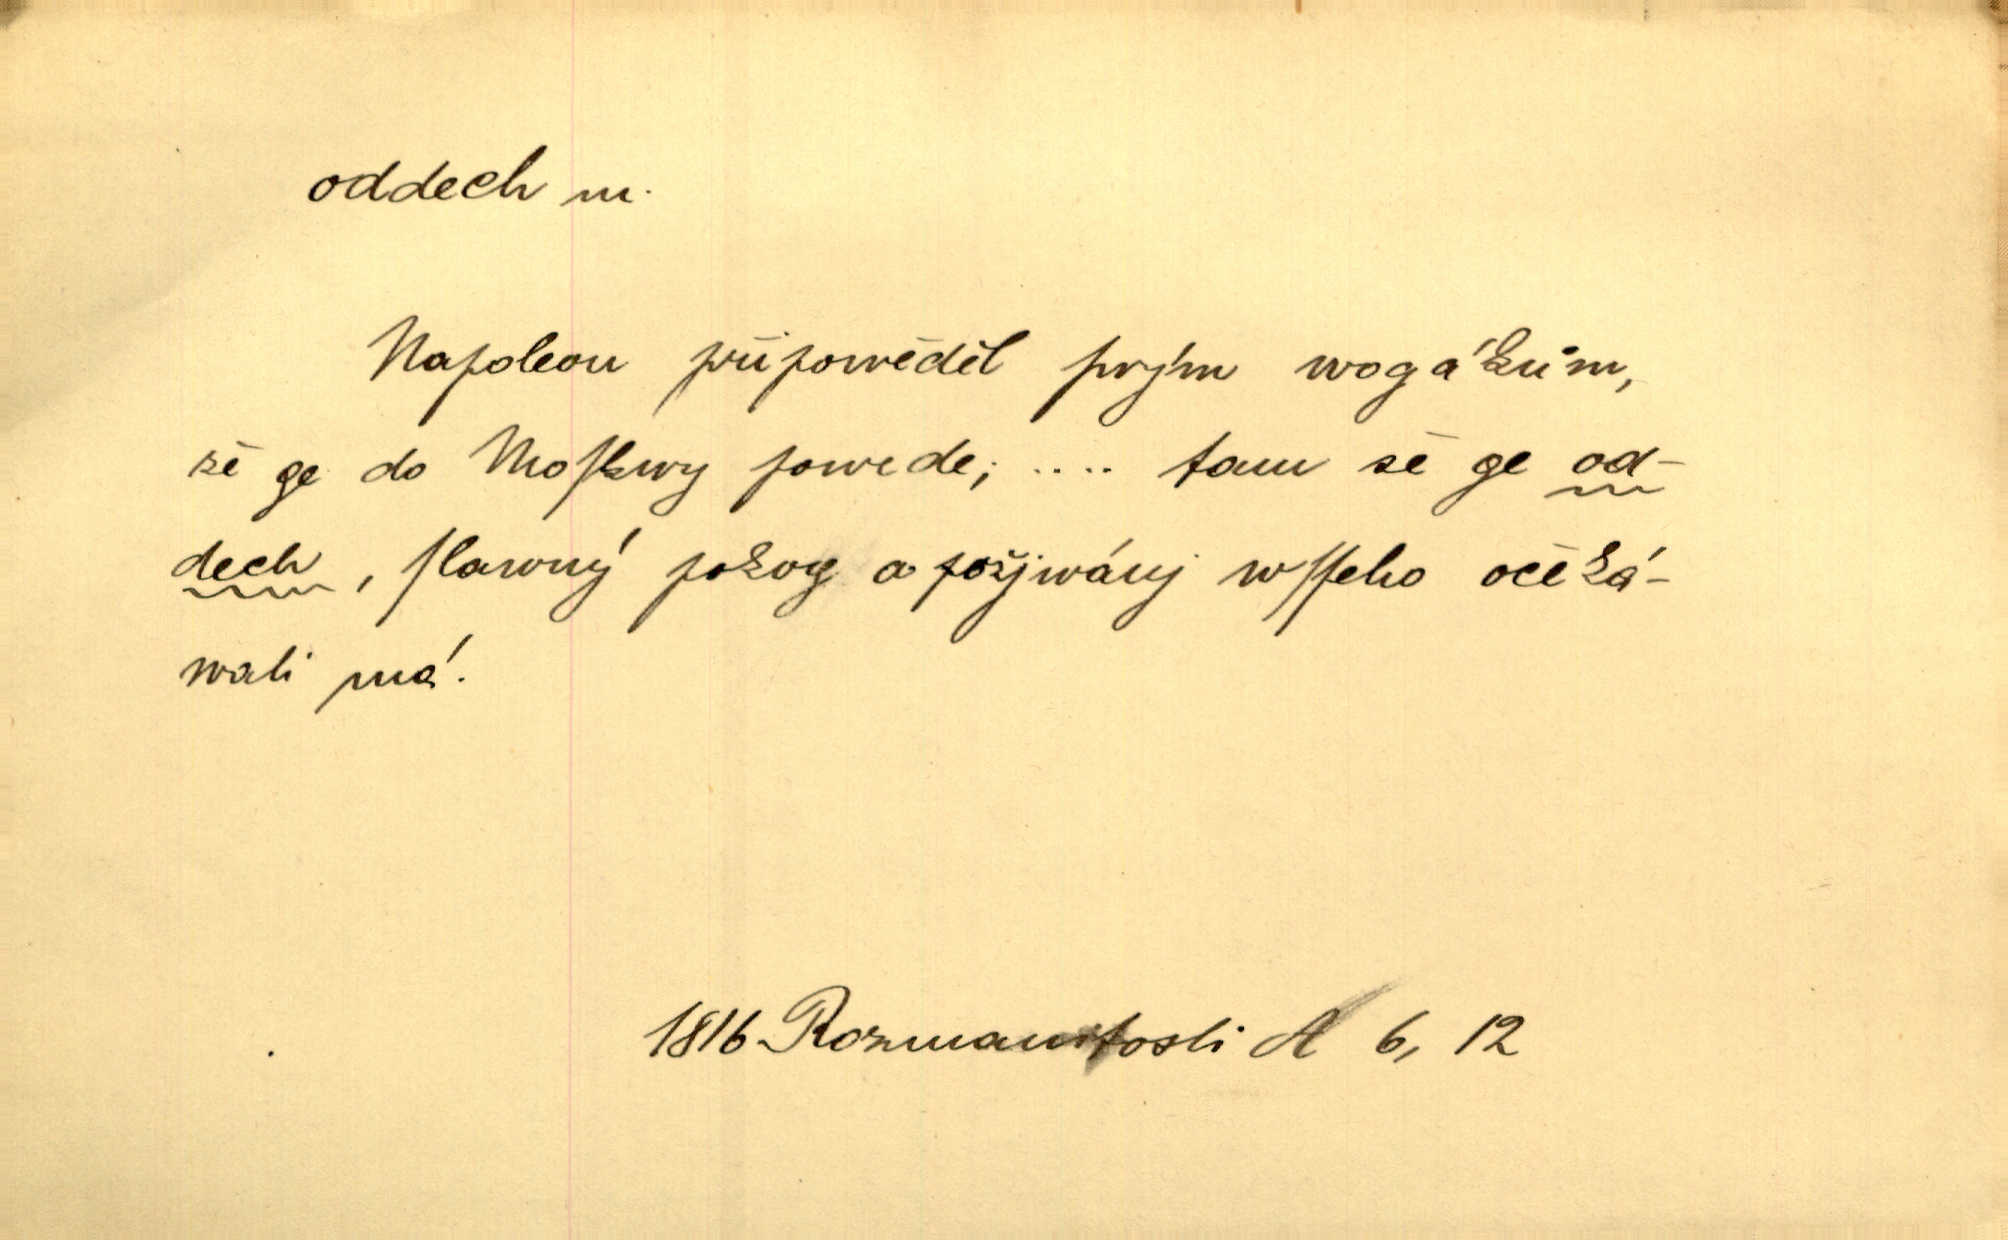 oddech m.
Napoleon připowěděl ſwým wogákům,
že ge do Moſkwy powede; .... tam že ge od-
dech, ſlawný pokog a požjwánj wſſeho očeká-
wati má.
1816 Rozmanitosti A 6, 12